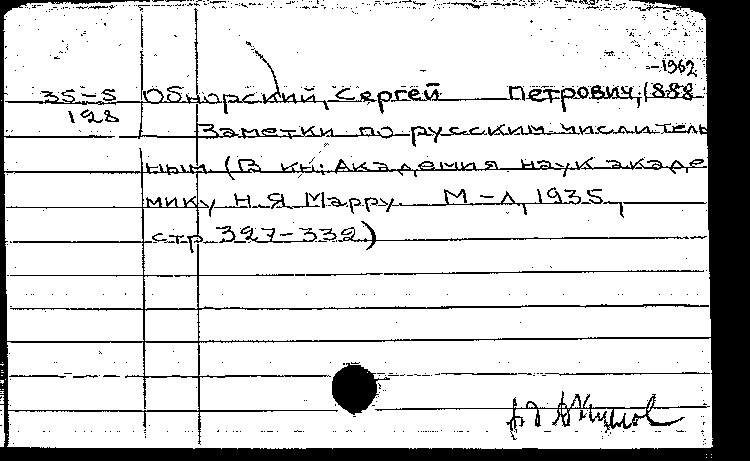 -1962
35-5 Обнорский, Сергей Петрович, 1888
128 Заметки по русским числитель
ным (В кн: Академия наук акаде
мику Н.Я Марру. М-Л, 1935,
стр 327-332)